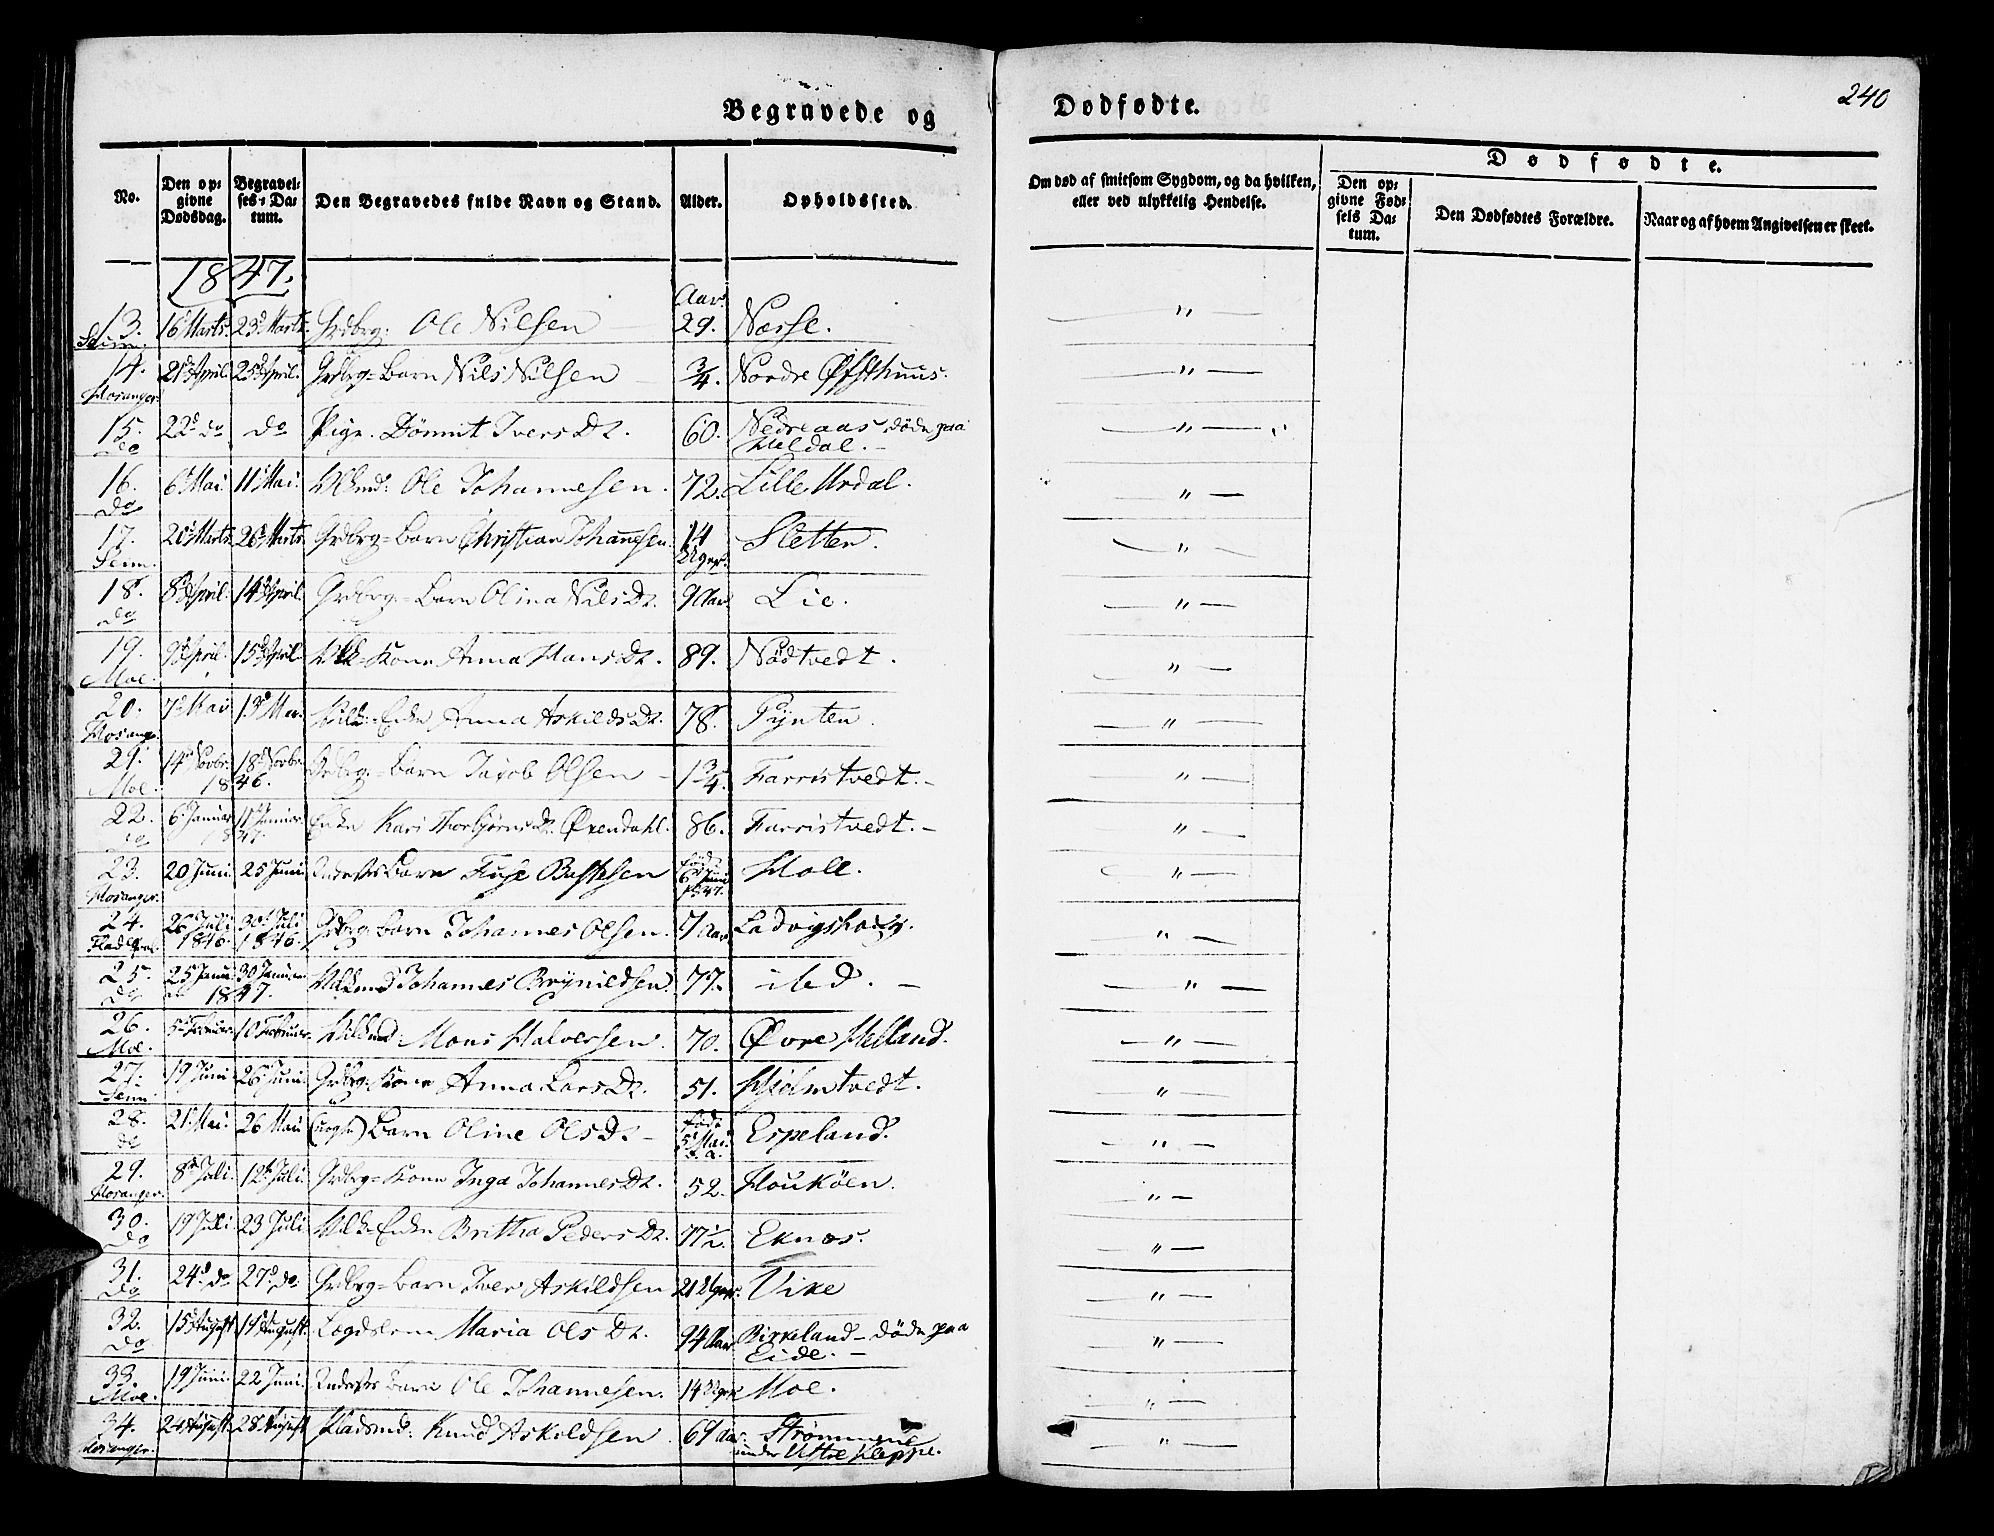 Begravede og
Dødfødte.
240
No.
Den opgivne Dødsdag.
Begravelses-Datum.
Den Begravedes fulde Navn og Stand.
Alder.
Opholdssted.
Om død af smitsom Sygdom, og da hvilken, eller ved ulykkelig Hendelse.
Dødfødte.
Den opgivne Fødsels Datum.
Den Dødfødtes Forældre.
Naar og af hvem Angivelsen er skeet.
1847.
Aar
13. Seim. 16d Marts. 23d Marts. Grdbrg: Ole Nilsen 29. Næsse. "
14. Hosanger. 21d April. 25d April. Grdbrg= Barn Nils Nilsen ¾. Nordre Øfsthuus. "
15. do 22d do do Pige. Dømmit Ivers Dr. 60. Nedreaas døde paa Meldal. "
16. do 6d Mai 11d Mai. Ole Johannesen. 72. Lille Urdal. "
17. Seim. 20d Marts. 26d Marts. Grdbrg= Barn Christian Johannesen. 14 Uger. Sletten. "
18. do 8d April. 14d April. Grdbrg.= Barn Olina Nils Dr. 9 Aar Lie. "
19. Moe. 9d April. 15d April. Kone Anna Hans Dr. 89. Nødtvedt. "
20. Hosanger. 7d Mai 13d Mai. Enke Anna Askilds Dr. 78. Pynten. "
29. Moe. 14d Novbr. 18d Novbr. 1846. Grdbrg= Barn Jacob Olsen 1¾. Farristvedt. "
22. do 6 Januar 11d Januar. 1847. Enke Kari Thorbjørns Dr. Øxendahl. 86. Farristvedt. "
23. Hosanger. 20 Juni 25 Juni Barn Fuse født 6d Juni 1847. Hole. "
24. 26 Juli 1846. 30d Juli 1846. Grdbrg Barn Johannes Olsen. 7 Aar "
25. do 25 Januar 30 Januar 1847. Johannes Brynildsen. 77. ibid. "
26. Moe. 5d Februar. 10 Februar. Mons Halversen. 70. Øvre Helland. "
27. Seim. 19 Juni 26 Juni. Grdbrg= Kone Anna Lars Dr. 51. Hjelmtvedt. "
28. do 21d Mai. 26 Mai (uægte) Barn Oline Ols Dr. født 5d Mai. Espeland. "
29. Hosanger. 8d Juli. 12d Juli. Grdbrg= Kone Inga Johannes Dr. 52. Houkøen. "
30. do 19 Juli 23 Juli Enke Brittha Peders Dr. 77½. Eknæs. "
31. do 24d do 27d do. Grdbrg= Barn Iver Askildsen 21 Uger. Vike "
32. do 15d August. 19d August. Lægdslem Maria Ols Dr. 94 Aar Birkeland - døde paa Eide. "
33. Moe. 19 Juni. 22 Juni. Barn Ole Johannesen. 14 Uger Moe. "
34. Hosanger. 24 August. 28 August Pladsmd: Knud Askildsen. 69 Aar. Strømmene under Ustre Kleppe. "